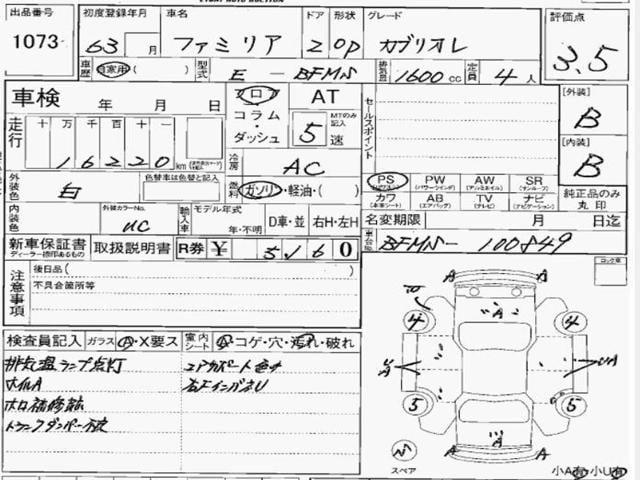 出品番号
1073
初度登録年月
63 月
車名
ファミリア
ドア 形状
2 OP
グレード
カブリオレ
評価点
3.5
車歴 自家用 ( )
型式
E - BFMS
排気量
1600 cc
定員
4 人
車検 年 月 日
走行
十 万 千 百 十 一
1 6 2 2 0 km
フロ AT
コラム・
ダッシュ
MTのみ記入
5 速
セールスポイント
[外装]
B
[内装]
B
外装色
白
色替車は色替と記入
冷房
AC
燃料 ガソリン・軽油・( )
PS
(パワステ)
PW
(パワーウインド)
AW
(アルミホイル)
SR
(サンルーフ)
カワ
(本革シート)
AB
(エアバッグ)
TV
(テレビ)
ナビ
(ナビゲーション)
純正品のみ
丸印
内装色
外装カラーNo.
UC
輸入車
モデル年式
年・不明
D車・並
右H・左H
名変期限 月 日迄
新車保証書
ディーラー捺印あるもの
取扱説明書
R券 ¥ 5160
車台No.
BFMS-100849
注意事項
後日品 ( )
不具合箇所等
検査員記入
ガラス A・X要ス
室内 シート A・コゲ・穴・汚れ・破れ
排気温ランプ点灯
ホイルA
ホロ補修跡
トランクダンパー不良
エアカバート色々
右FインパネU
A
A A
A
4
4
A
UA
5
5
A
A A
スペア
小A 小U